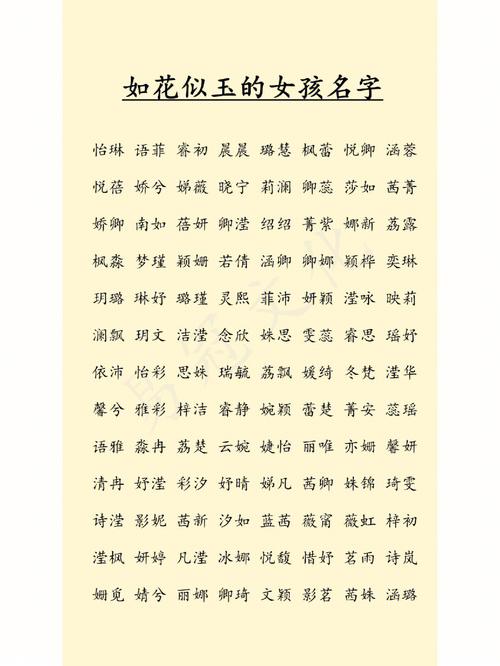 如花似玉的女孩名字
怡琳 语菲 睿初 晨晨 璐慧 枫蕾 悦卿 涵蓉
悦蓓 娇兮 娣薇 晓宁 莉澜 卿蕊 莎如 茜菁
娇卿 南如 蓓妍 卿滢 绍绍 菁紫 娜新 荔露
枫淼 梦瑾 颖姗 若倩 涵卿 卿娜 颖桦 奕琳
玥璐 琳妤 璐瑾 灵熙 菲沛 妍颖 滢咏 映莉
澜飘 玥文 洁滢 念欣 姝思 雯蕊 睿思 瑶妤
依沛 怡彩 思姝 瑞毓 荔飘 媛绮 冬梵 滢华
馨兮 雅彩 梓洁 睿静 婉颖 蕾楚 菁安 蕊瑶
语雅 淼冉 荔楚 云婉 婕怡 丽唯 亦姗 馨妍
清冉 妤滢 彩汐 妤晴 娣凡 茜卿 姝锦 琦雯
诗滢 影妮 茜新 汐如 蓝茜 薇甯 薇虹 梓初
滢枫 妍婷 凡滢 冰娜 悦馥 惜妤 茗雨 诗岚
姗觅 婧兮 丽娜 卿琦 文颖 影茗 茜姝 涵璐
易冠文化